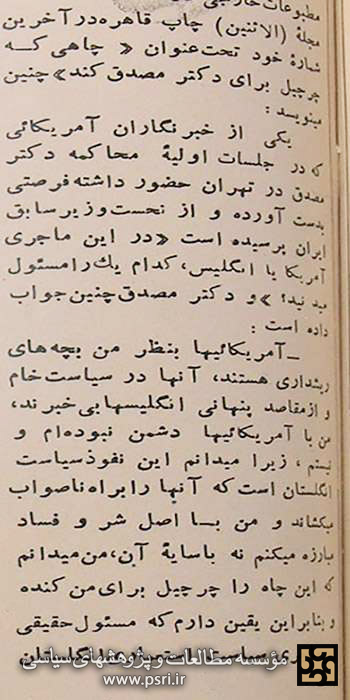 مطبوعات خارجی
مجلهٔ (الاثنین) چاپ قاهره در آخرین
شمارهٔ خود تحت عنوان « چاهی که
چرچیل برای دکتر مصدق کند» چنین
مینویسد :
یکی از خبرنگاران آمریکائی
که در جلسات اولیهٔ محاکمه دکتر
مصدق در تهران حضور داشته فرصتی
بدست آورده و از نخست وزیر سابق
ایران پرسیده است «در این ماجری
آمریکا یا انگلیس، کدام یك را مسئول
میدانید؟ » و دکتر مصدق چنین جواب
داده است :
ـ آمریکائیها بنظر من بچه های
ریشداری هستند، آنها در سیاست خام
و از مقاصد پنهانی انگلیسها بی خبرند،
من با آمریکائیها دشمن نبوده ام و
نیستم ، زیرا میدانم این نفوذ سیاست
انگلستان است که آنها را براه ناصواب
میکشاند و من بــا اصل شر و فساد
مبارزه میکنم نه با سایهٔ آن، من میدانم
که این چاه را چرچیل برای من کنده
و بنابراین یقین دارم که مسئول حقیقی
سیاست
مؤسسه مطالعات و پژوهشهای سیاسی
www.psri.ir